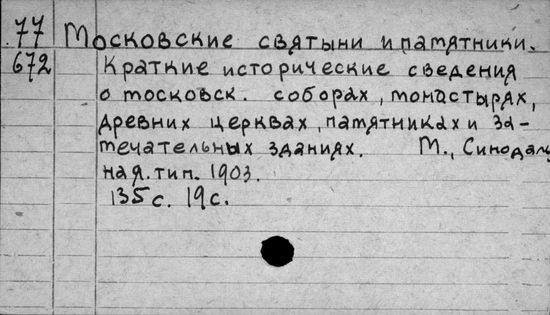 77 Московские святыни и памятники.
672 Краткие исторические сведения
о московск. соборах, монастырях,
древних церквах, памятниках и за-
мечательных зданиях. М., Синодаль
ная. тип. 1903.
135 с. 19 с.